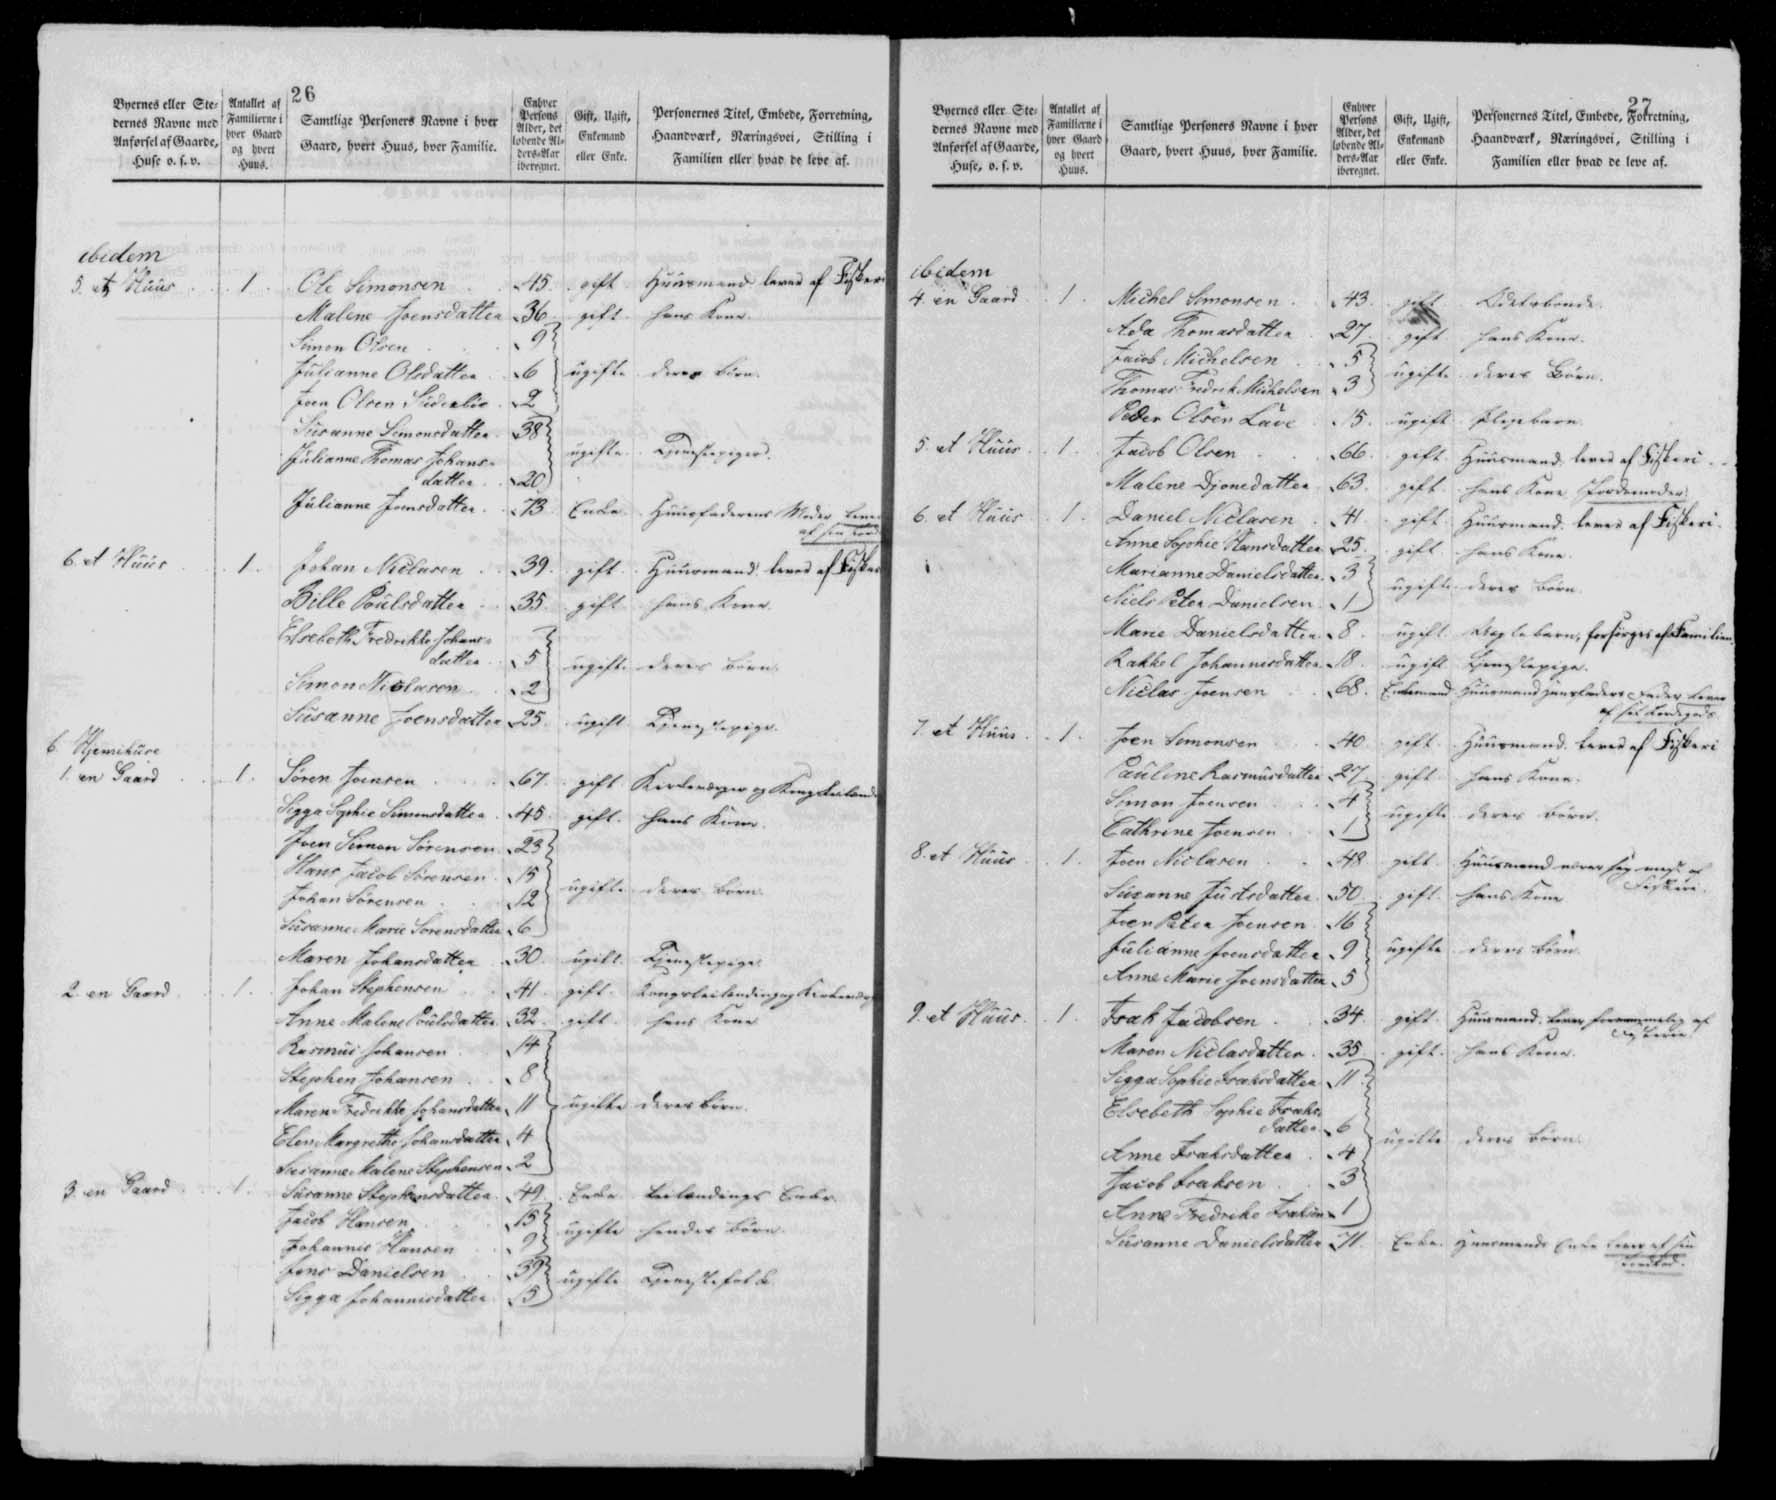 26
Byernes eller Ste-
dernes Navne med
Anførsel af Gaarde,
Huse o. s. v.
Antallet af
Familierne i
hver Gaard
og hvert
Huus.
Samtlige Personers Navne i hver
Gaard, hvert Huus, hver Familie.
Enhver
Persons
Alder, det
løbende Al-
ders-Aar
iberegnet.
Gift, Ugift,
Enkemand
eller Enke.
Personernes Titel, Embede, Forretning,
Haandværk, Næringsvei, Stilling i
Familien eller hvad de leve af.
ibidem
5. et Huus 1. Ole Simonsen 45. gift Huusmand lever af Fiskeri
Malene Joensdatter 36 gift hans Kone
Simon Olsen 9
Julianne Olsdatter 6 ugifte deres Børn
Joen Olsen 2
Susanne Simonsdatter 38
Julianne Thomas Johans- ugifte Tjenestepiger.
datter 20
Julianne Joensdatter 73 Enke Huusfaderens Moder lever
af sin
6. et Huus 1. Johan Niclasen 39. gift Huusmand lever af Fiskeri
Bille Poulsdatter 35. gift hans Kone
Elsebeth Fredrikke Johans-
datter 5 ugifte deres Børn
Simon Niclasen 2
Susanne Joensdatter 25. ugift Tjenestepige
6.
1. en Gaard 1. Søren Joensen 67. gift Kirkeværger og
Sigga Sophie Simonsdatter 45 gift hans Kone.
Joen Simon Sørensen 23
Hans Jacob Sørensen 15
ugifte deres Børn
Johan Sørensen 12
Susanne Marie Sørensdatter 6
Maren Johansdatter 30 ugift Tjenestepige
2. en Gaard 1. Johan Stephensen 41 gift
Anne Malene Poulsdatter 32 gift hans Kone
Rasmus Johansen 14
Stephen Johansen 8
Maren Fredrikke Johansdatter 11 ugifte deres Børn.
Elen Margrethe Johansdatter 4
Susanne Malene Stephensen 2
3. en Gaard 1. Susanne Stephensdatter 49. Enke Enke
Jacob Hansen 15
ugifte hendes Børn
Johannis Hansen 9
Jens Danielsen 39
ugifte Tjenestefolk
Sigga Johannisdatter 15
27
Byernes eller Ste-
dernes Navne med
Anførsel af Gaarde,
Huse, o. s. v.
Antallet af
Familierne i
hver Gaard
og hvert
Huus.
Samtlige Personers Navne i hver
Gaard, hvert Huus, hver Familie.
Enhver
Persons
Alder, det
løbende Al-
ders-Aar
iberegnet.
Gift, Ugift,
Enkemand
eller Enke.
Personernes Titel, Embede, Forretning,
Haandværk, Næringsvei, Stilling i
Familien eller hvad de leve af.
ibidem
4. en Gaard 1. Michel Simonsen 43. gift Odelsbonde
Ada Thomasdatter 27 gift hans Kone.
Jacob Michelsen 5
ugifte deres Børn.
Thomas Fredrik Michelsen 3
Peder Olsen 15 ugift Pleiebarn
5. et Huus 1. Jacob Olsen 66. gift Huusmand lever af Fiskeri
Malene Djonedatter 63. gift hans Kone
6. et Huus 1. Daniel Niclasen 41 gift Huusmand lever af Fiskeri
Anne Sophie Hansdatter 25. gift hans Kone
Marianne Danielsdatter 3
ugifte deres Børn.
Niels Peter Danielsen 1
Marie Danielsdatter 8. ugift forsørges af Familien
Rakkel Johannisdatter 18. ugift Tjenestepige
Niclas Joensen 68. Enkemand Huusmand Huusfaders Fader lever
af sit
7. et Huus 1. Joen Simonsen 40 gift Huusmand lever af Fiskeri
Pauline Rasmusdatter 27 gift hans Kone.
Simon Joensen 4
ugifte deres Børn.
Cathrine Joensen 1
8. et Huus 1. Joen Niclasen 48 gift Huusmand nærer sig mest af
Fiskeri.
Susanne Justsdatter 50 gift hans Kone
Joen Peter Joensen 16
Julianne Joensdatter 9 ugifte deres Børn
Anne Marie Joensdatter 5
9. et Huus 1. Isak Jacobsen 34. gift Huusmand lever fornemmelig af
Fiskeri
Maren Niclasdatter 35 gift hans Kone.
Sigga Sophie Isaksdatter 11
Elsebeth Sophie Isaks-
datter 6
ugifte deres Børn
Anne Isaksdatter 4
Jacob Isaksen 3
Anne Fredrike Isaksen 1
Susanne Danielsdatter 71. Enke. Huusmands Enke lever af sin